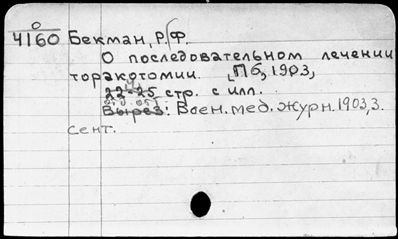 О
4160 Бекман, Р. Ф.
О последовательном лечении
торакотомии. [Пб, 1903,
22-25 стр. с илл.
Вырез: Воен. мед. журн. 1903, 3.
сент.